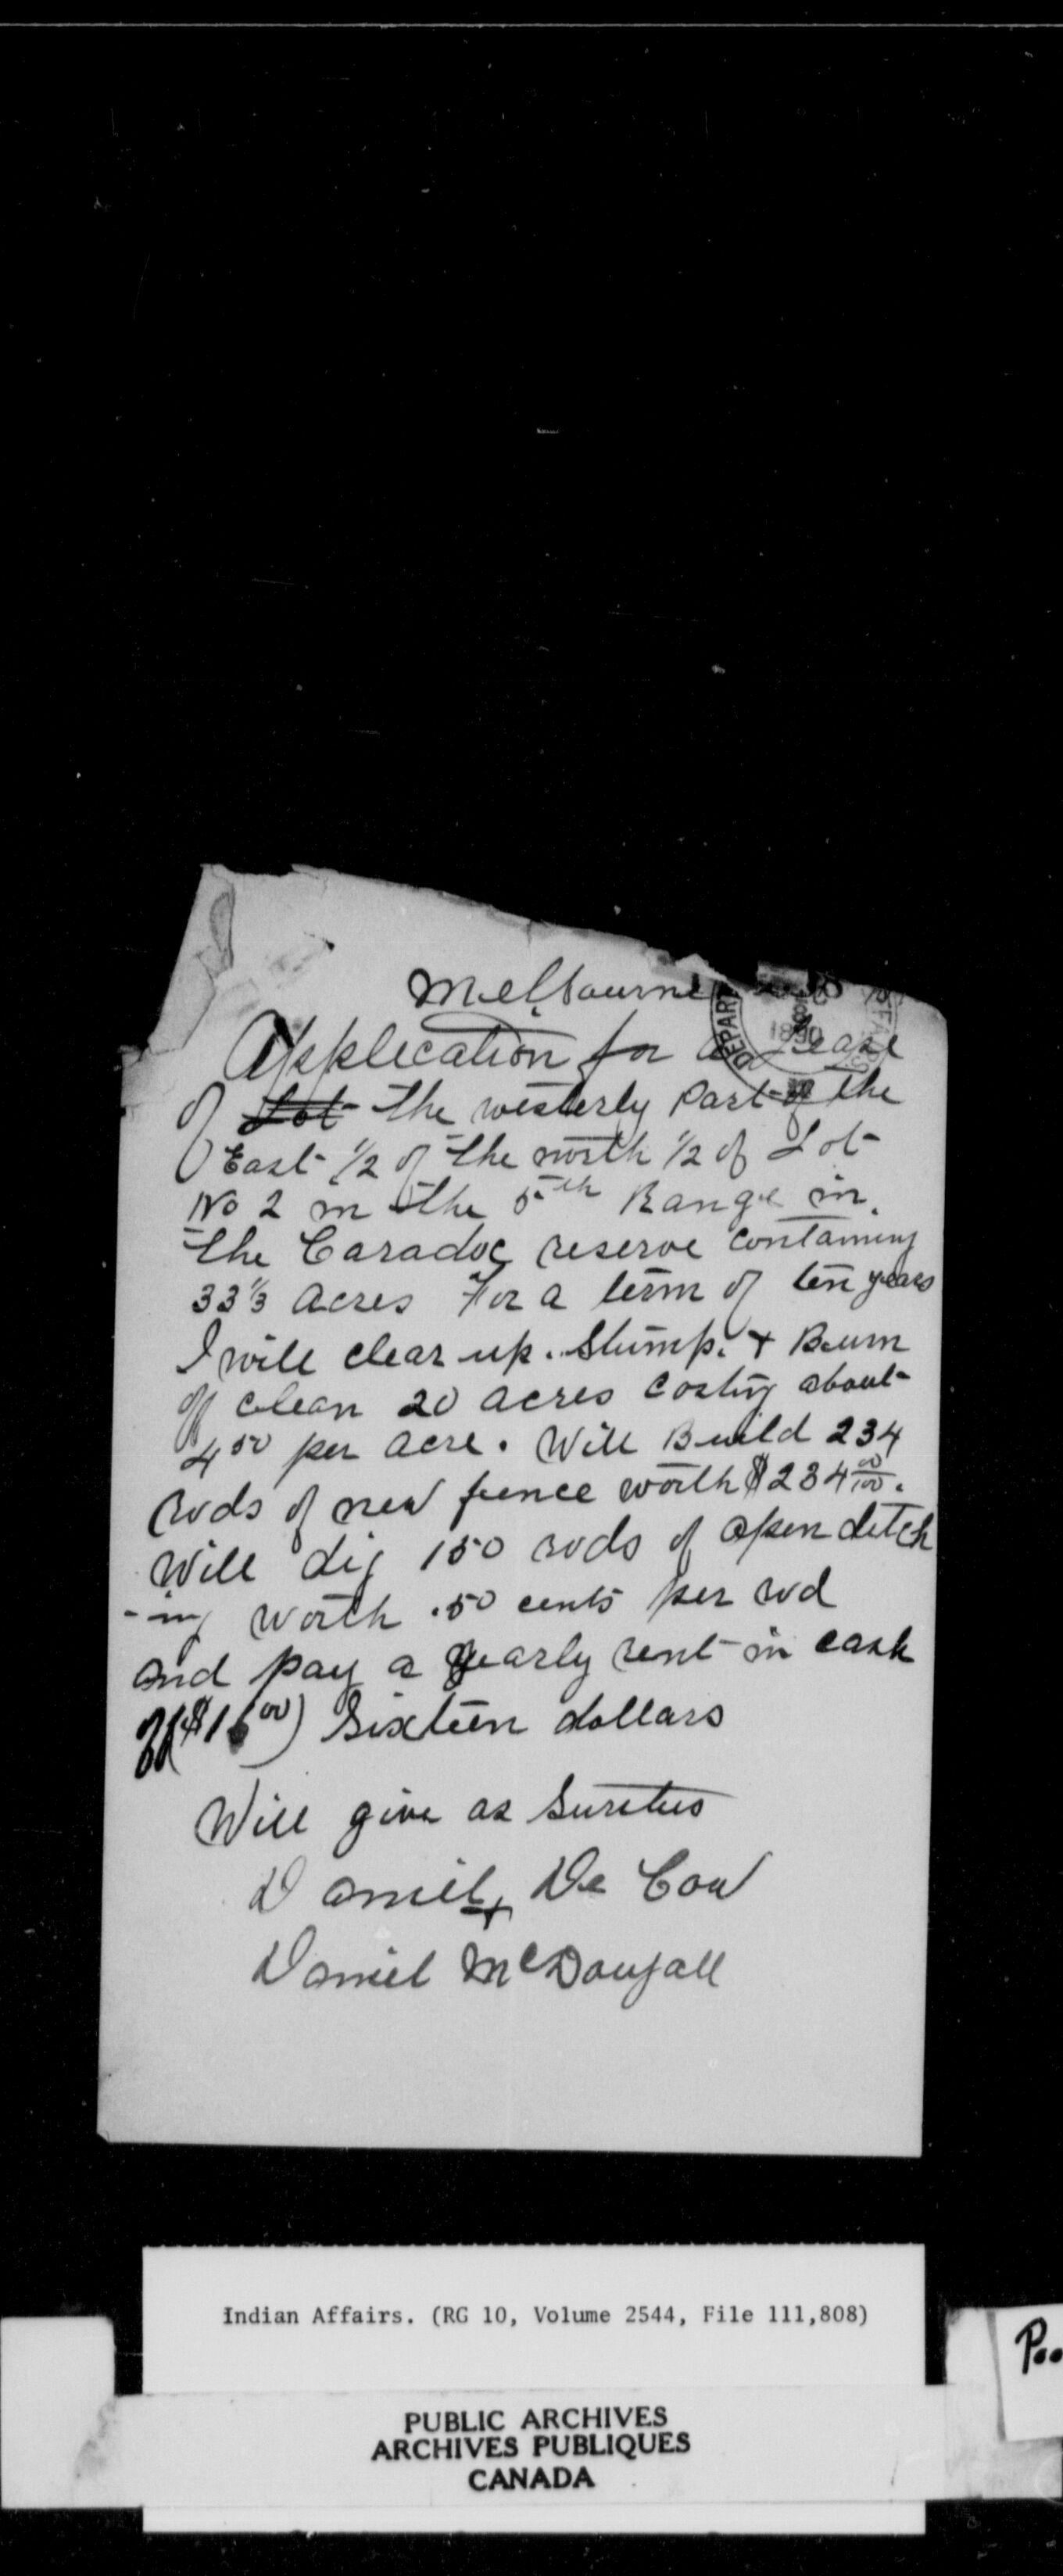 Melbourne
Application for a Lease
of Lot the westerly Part of the
East ½ of the north ½ of Lot
No 2 in the 5th Range in
the Caradoc reserve containing
33⅓ acres For a term of ten years
I will clear up. Stump. + Burn
off clean 20 acres costing about
4 50 per acre. Will Build 234
rods of new fence worth $234 00/100.
Will dig 150 rods of open ditch
-ing worth .50 cents per rod
and pay a yearly rent in cash
of ($16 00) Sixteen dollars
Will give as Sureties
Daniel De Cow
+
Daniel McDougall
DEPART
1890
Indian Affairs. (RG 10, Volume 2544, File 111,808)
PUBLIC ARCHIVES
ARCHIVES PUBLIQUES
CANADA